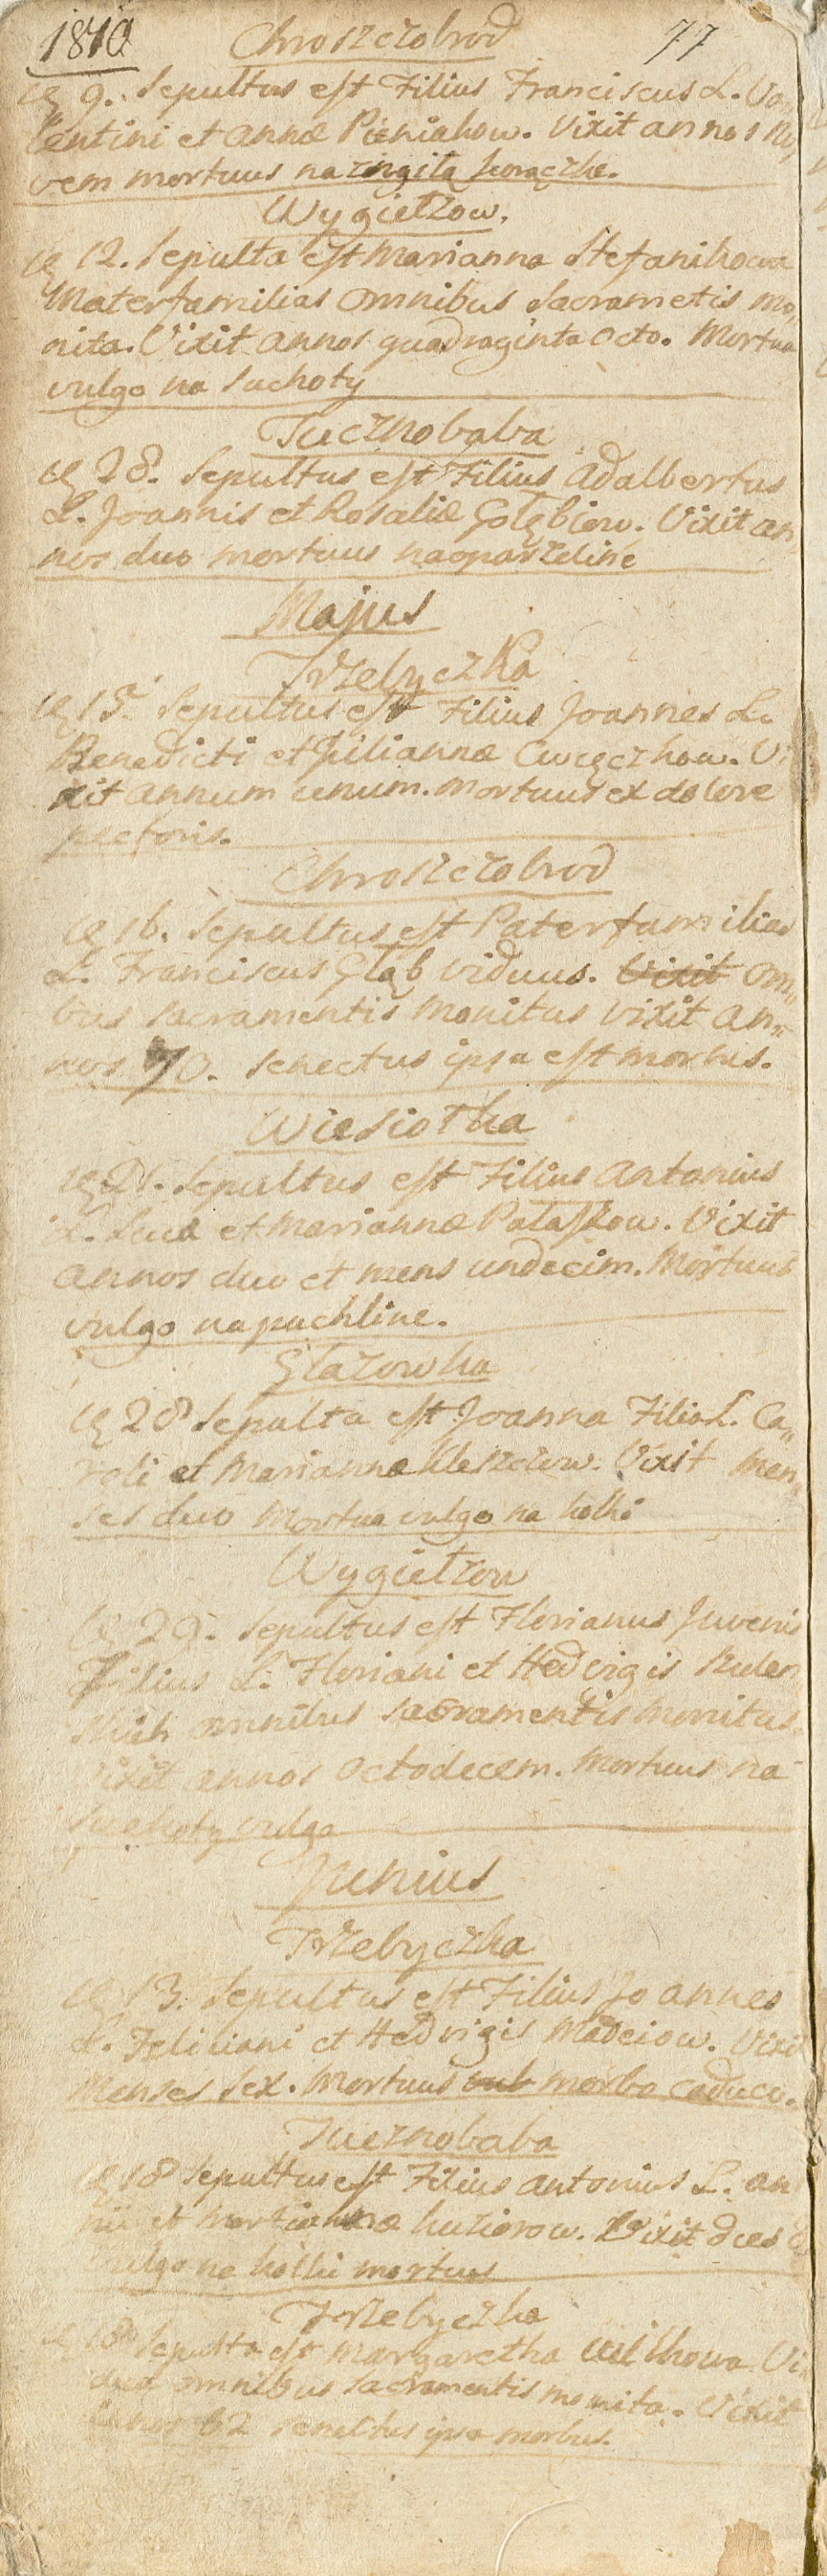 1810 Chroszczobrod 77
9. Sepultus est Filius Franciscus L. Va,,
lentini et Annæ Pieniakow. Vixit annos No,,
vem mortuus na zngiła gorączke.
Wygiełzow.
12. Sepulta est Marianna Stefanikowa
Materfamilias omnibus Sacrametis mo,,
nita. Vixit annos quadraginta octo. Mortua
vulgo na suchoty
Tucznobaba
28. Sepultus est Filius Adalbertus
L. Joannis et Rosaliæ Gołębiow. Vixit an,,
nos duo mortuus na oparzeline
Majus
Trzebyczka
15. Sepultus est Filius Joannes L.
Benedicti et Juliannæ Cwięczkow. Vi
xit annum unum. mortuus ex dolore
pectoris.
Chroszczobrod
16. Sepultus est Paterfamilias
L. Franciscus Głąb viduus. Vixit om,,
bus sacramentis monitus vixit an,,
nos 70. senectus ipsa est morbus.
Wiesiołka
21. Sepultus est Filius Antonius
L. Lucæ et Mariannæ Pałaszow. Vixit
annos duo et mens undecim. Mortuus
vulgo na puchline.
Głazowka
28 Sepulta est Joanna Filia L. Ca,,
roli et Mariannæ Kleszczow. Vixit men,,
ses duo Mortua vulgo na kolki
Wygiełzow
29. Sepultus est Florianus Juvenis
Filius L. Floriani et Hedvigis Kulen
skich omnibus sacramentis monitus.
Vixit annos octodecem. Mortuus na
suchoty vulgo
Junius
Trzebyczka
13. Sepultus est Filius Joannes
L. Feliciani et Hedvigis Madeiow. Vixit
Menses sex. Mortuus sub morbo caduco.
Tucznobaba
18 Sepultus est Filius Antonius L. An
nii et Mariannæ kuziorow. Vixit dies
vulgo na kolki mortuus
Trzebyczka
18 Sepulta est Margaretha wilkowa Vi
dua omnibus sacramentis monita. Vixit
annos 62 senectus ipsa morbus.